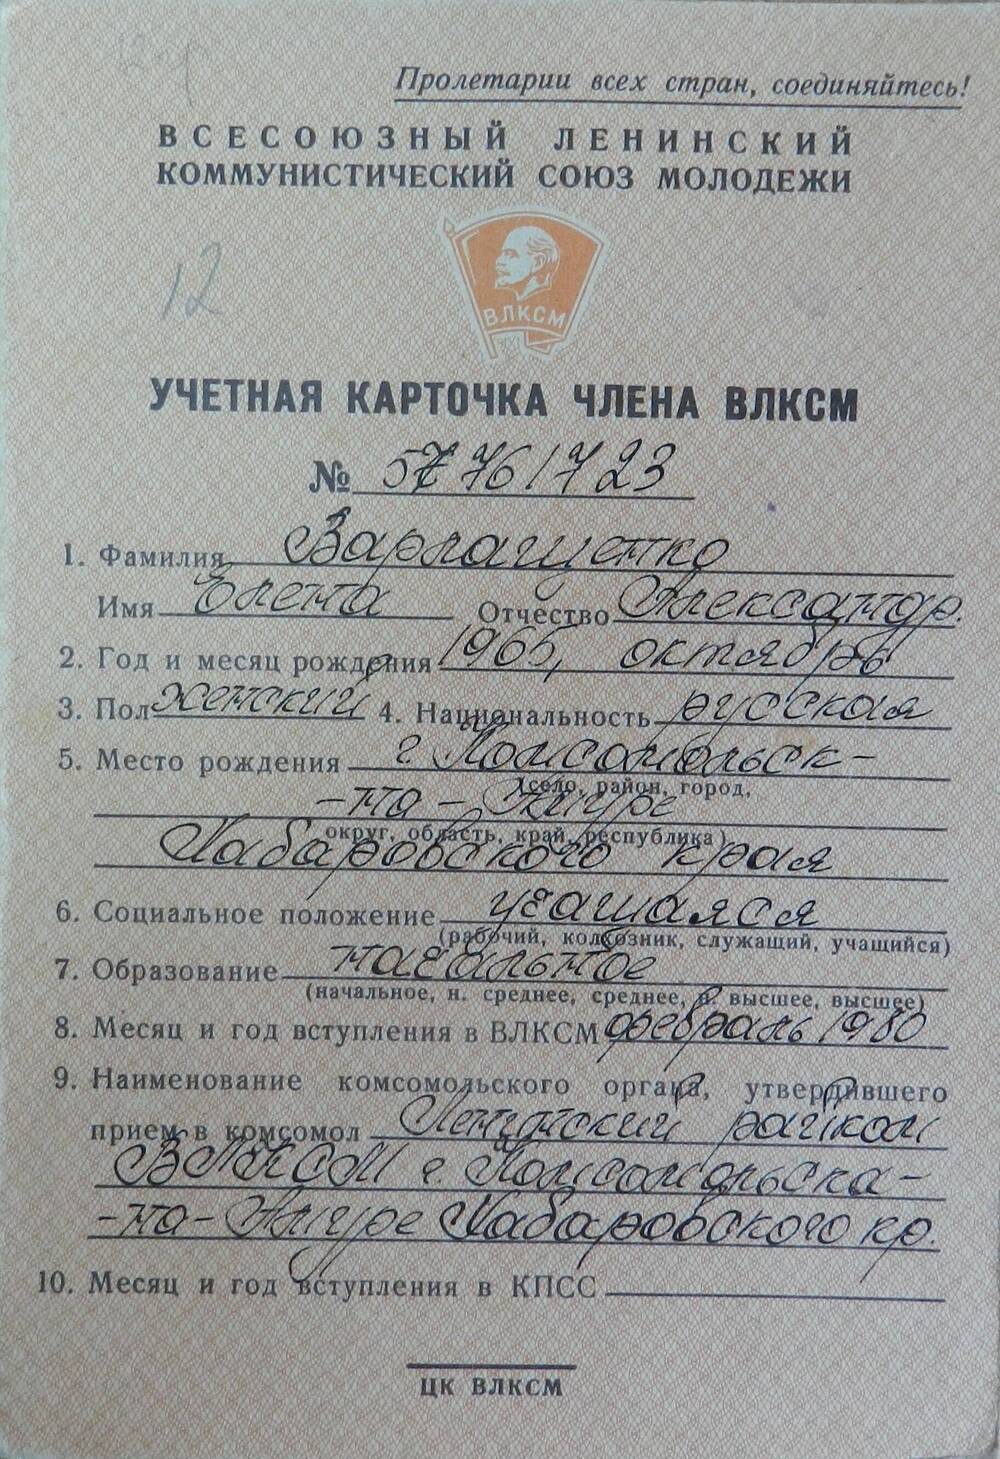 Пролетарии всех стран, соединяйтесь!
ВСЕСОЮЗНЫЙ ЛЕНИНСКИЙ
КОММУНИСТИЧЕСКИЙ СОЮЗ МОЛОДЕЖИ
12
ВЛКСМ
УЧЕТНАЯ КАРТОЧКА ЧЛЕНА ВЛКСМ
№ 57761723
1. Фамилия Варлащенко
Имя Елена Отчество Александр.
2. Год и месяц рождения 1965, октябрь
3. Пол женский 4. Национальность русская
5. Место рождения г. Комсомольск-
(село, район, город,
-на-Амуре
округ, область, край, республика)
Хабаровского края
6. Социальное положение учащаяся
(рабочий, колхозник, служащий, учащийся)
7. Образование начальное
(начальное, н. среднее, среднее, н. высшее, высшее)
8. Месяц и год вступления в ВЛКСМ февраль 1980
9. Наименование комсомольского органа, утвердившего
прием в комсомол Ленинский райком
ВЛКСМ г. Комсомольска-
-на-Амуре Хабаровского кр.
10. Месяц и год вступления в КПСС
ЦК ВЛКСМ